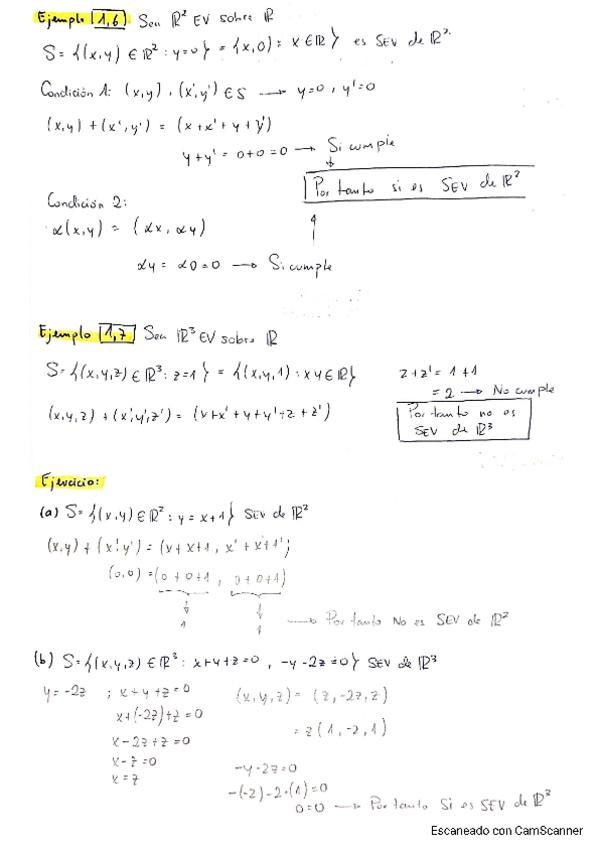 Ejemplo 1,6 Sea ℝ² EV sobre ℝ
S = {(x,y) ∈ ℝ² : y=0} = {x,0) : x ∈ ℝ} es SEV de ℝ².
Condición 1: (x,y), (x',y') ∈ S → y=0, y'=0
(x,y) + (x',y') = (x+x' + y+y')
y+y' = 0+0=0 → Si cumple
Por tanto si es SEV de ℝ²
Condición 2:
α(x,y) = (αx, αy)
αy = α0=0 → Si cumple
Ejemplo 1,7 Sea ℝ³ EV sobre ℝ
S={(x,y,z) ∈ ℝ³: z=1} = {(x,y,1) : x y ∈ ℝ}
z+z' = 1+1
= 2 → No cumple
(x,y,z) + (x',y',z') = (x+x' + y+y' + z+z')
Por tanto no es
SEV de ℝ³
Ejercicio:
(a) S={(x,y) ∈ ℝ² : y=x+1} SEV de ℝ²
(x,y) + (x',y') = (x+x+1, x'+x'+1')
(0,0) = (0+0+1, 0+0+1)
1 1 → Por tanto No es SEV de ℝ²
(b) S={(x,y,z) ∈ ℝ³ : x+y+z=0, -y-2z=0} SEV de ℝ³
y=-2z ; x+y+z=0
x+(-2z)+z=0
x-2z+z=0
x-z=0
x=z
(x,y,z) = (z,-2z,z)
= z(1,-2,1)
-y-2z=0
-(-2)-2·(1)=0
0=0 → Por tanto Si es SEV de ℝ³
Escaneado con CamScanner